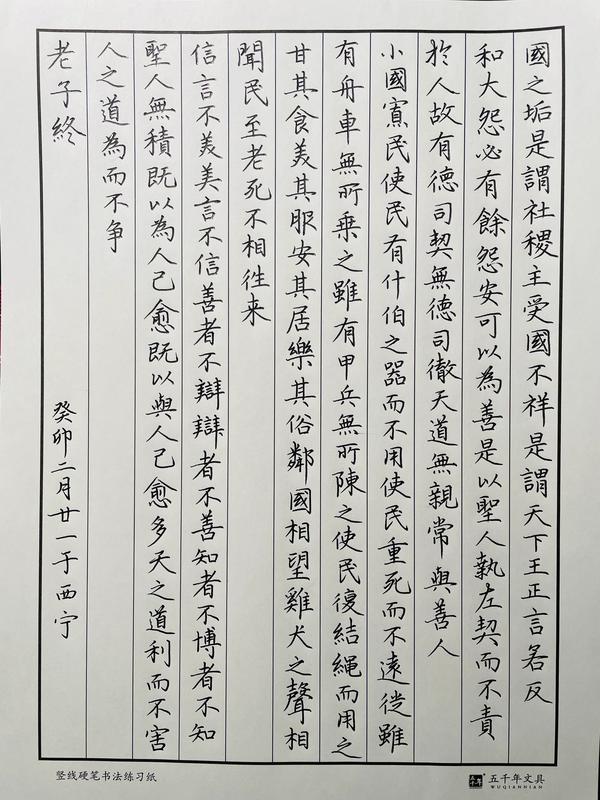 國之垢是謂社稷主受國不祥是謂天下王正言若反
和大怨必有餘怨安可以為善是以聖人執左契而不責
於人故有德司契無德司徹天道無親常與善人
小國寡民使民有什伯之器而不用使民重死而不遠徙雖
有舟車無所乘之雖有甲兵無所陳之使民復結繩而用之
甘其食美其服安其居樂其俗鄰國相望雞犬之聲相
聞民至老死不相往来
信言不美美言不信善者不辯辯者不善知者不博者不知
聖人無積既以為人己愈既以與人己愈多天之道利而不害
人之道為而不争
老子終
癸卯二月廿一于西宁
竖线硬笔书法练习纸
五千年文具
WUQIANNIAN